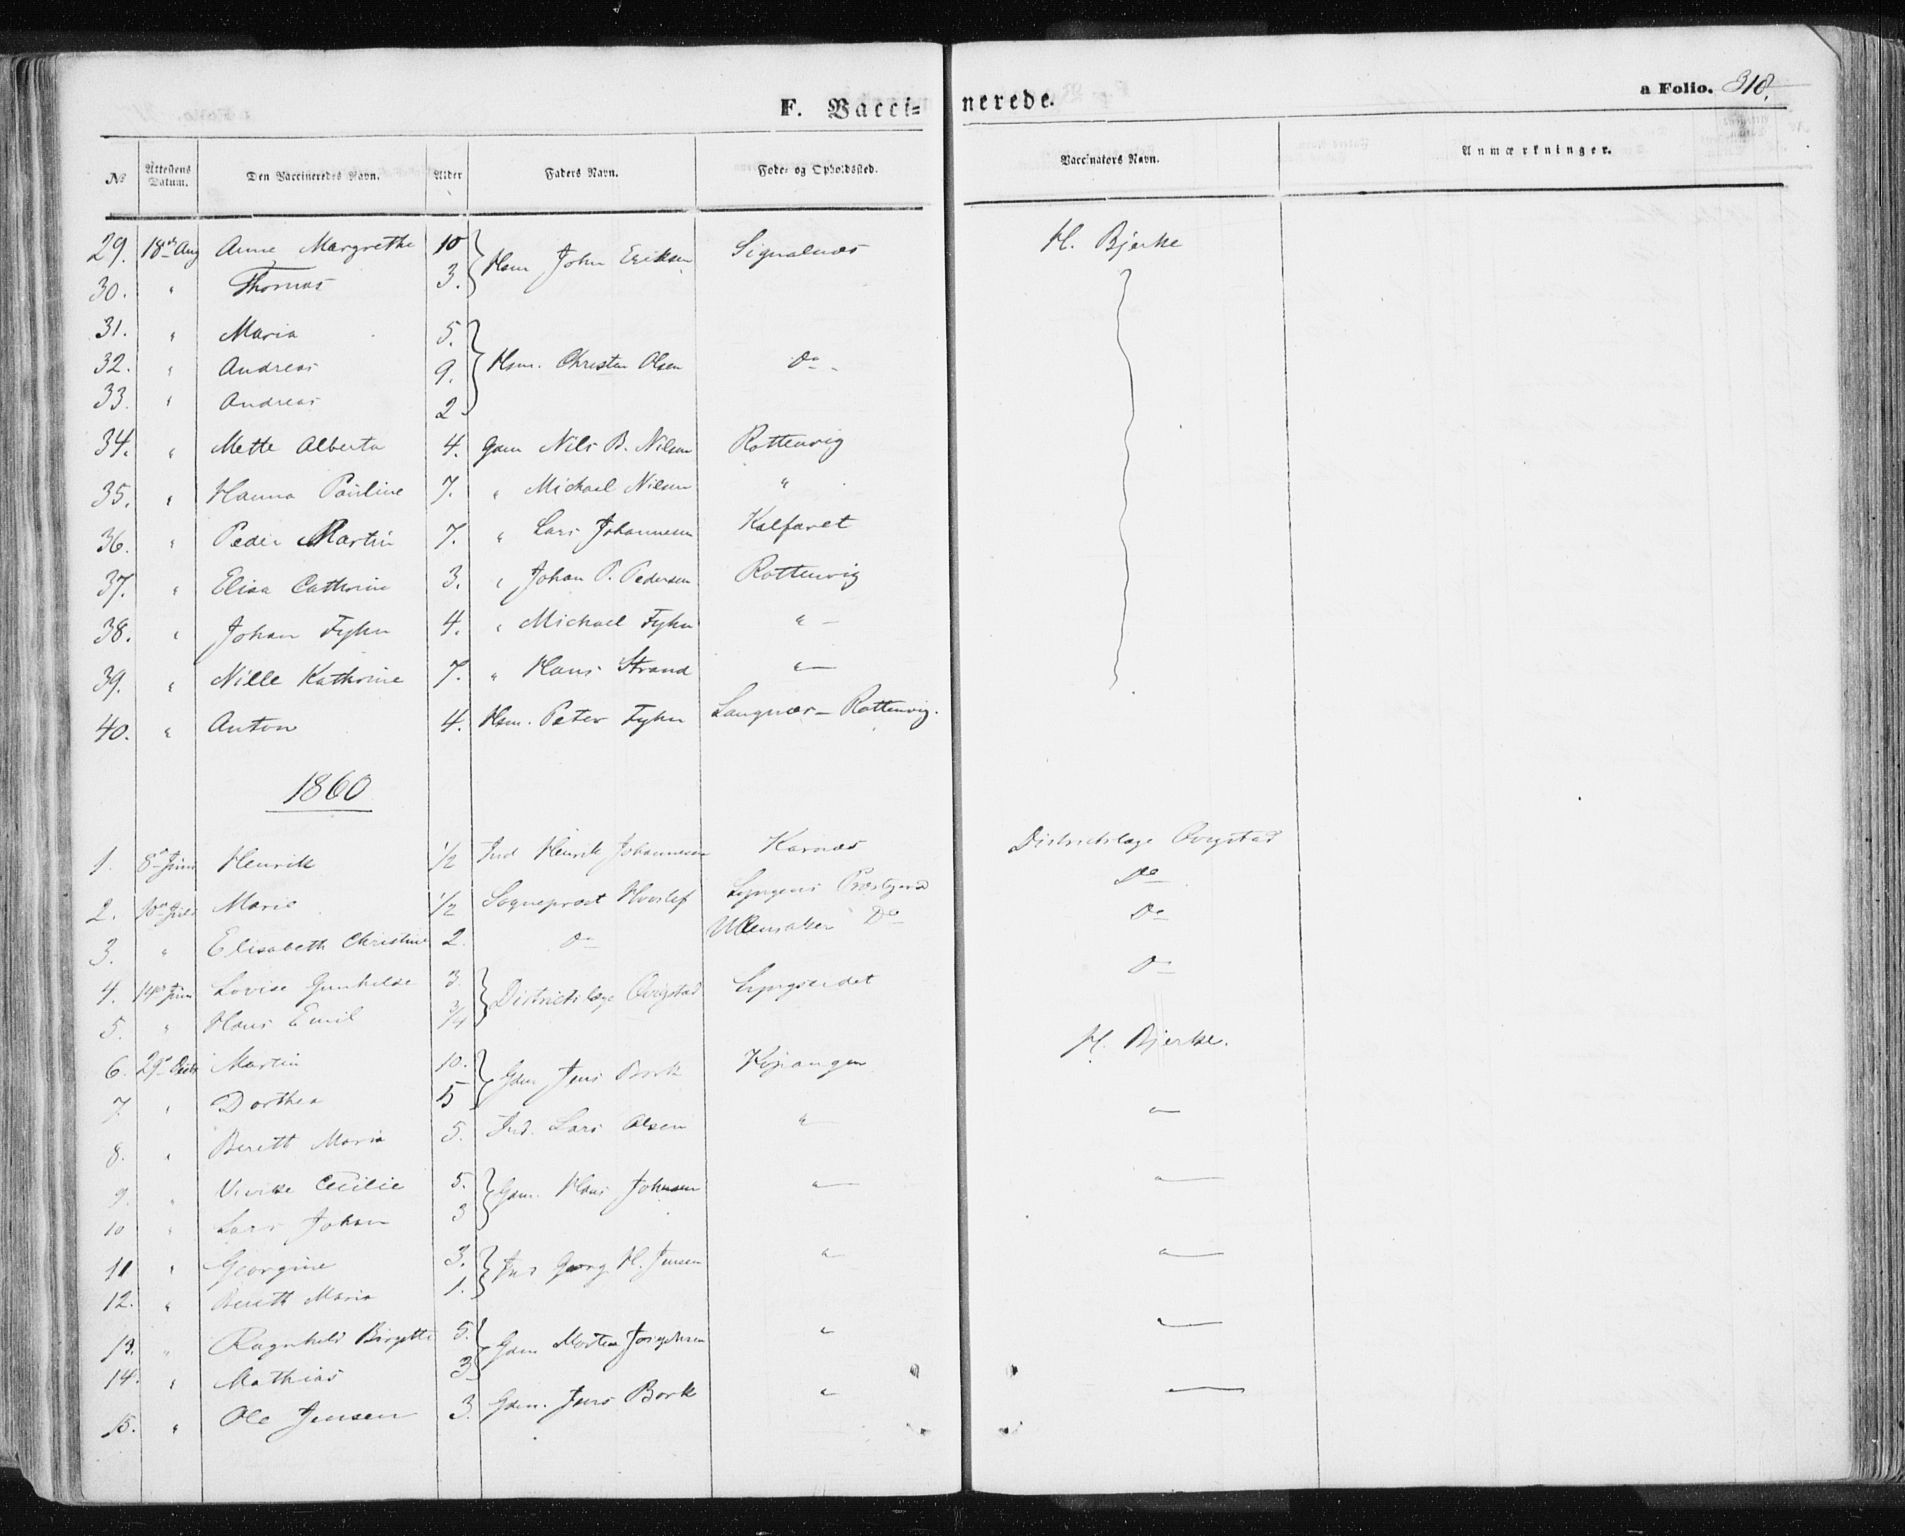 F. Vaccinerede.
a Folio. 318.
No Attestens Datum. Den Vaccineredes Navn. Alder Faders Navn. Føde- og Opholdssted. Vaccinators Navn. Anmærkninger.
29. 18de Aug Anne Margrethe 10 Hsm John Eriksen Signalnæs H. Bjerke
30. " Thomas 3.
31. " Maria 5.
32. " Andreas 9. Hsm. Christen Olsen Do
33. " Andreas 2
34. " Mette Alberta 4. Gdm Nils B. Nilsen Rottenvig
35. " Hanna Pauline 7. " Michael Nilsen "
36. " Peder Martin 7. " Lars Johannesen Kalfaret
37. " Elisa Cathrine 3. " Johan P. Pedersen Rottenvig
38. " Johan Fyhn 4. " Michael Fyhn " –
39. " Nille Kathrine 7. " Hans Strand " –
40. " Anton 4. Hsm. Peter Fyhn Langnæs – Rottenvig.
1860
1. 8de Juni Henrik 1/2 Ind Henrik Johannesen Karnæs Districtslæge Qvigstad
2. 10de Marie 1/2 Sogneprost Hvoslef Lyngens Præstgard Do
3. " Elisabeth Christine 2. Do Ullensaker Do Do
4. 14de Juni Lovise Gunhilde 3. Districtslæge Qvigstad Lyngseidet Do
5. " Hans Emil 3/4
6. 29de Martin 10. Gdm Jens Bork Kipiangen H. Bjerke.
7. " Dorthea 5
8. " Berett Maria 5. Ind. Lars Olsen " – " –
9. " Vivike Cecilie 5. Gdm. Hans Johnsen " – " –
10 " Lars Johan 3
11 " Georgine 3. Ind Georg H. Jensen " – " –
12. " Berett Maria 1.
13. " Ragnhild Birgitte 5. Gdm Morten Josephsen " " –
14. " Mathias 3
15. " Ole Jensen 3. Gdm. Jens Bork " " –